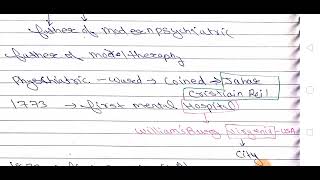 father of modern psychiatric
father of model therapy
Physchiatric - word → Coined → Johas
Cristian Reil
1773 → first mental Hospital
William'sBurg Virginia - USA
City